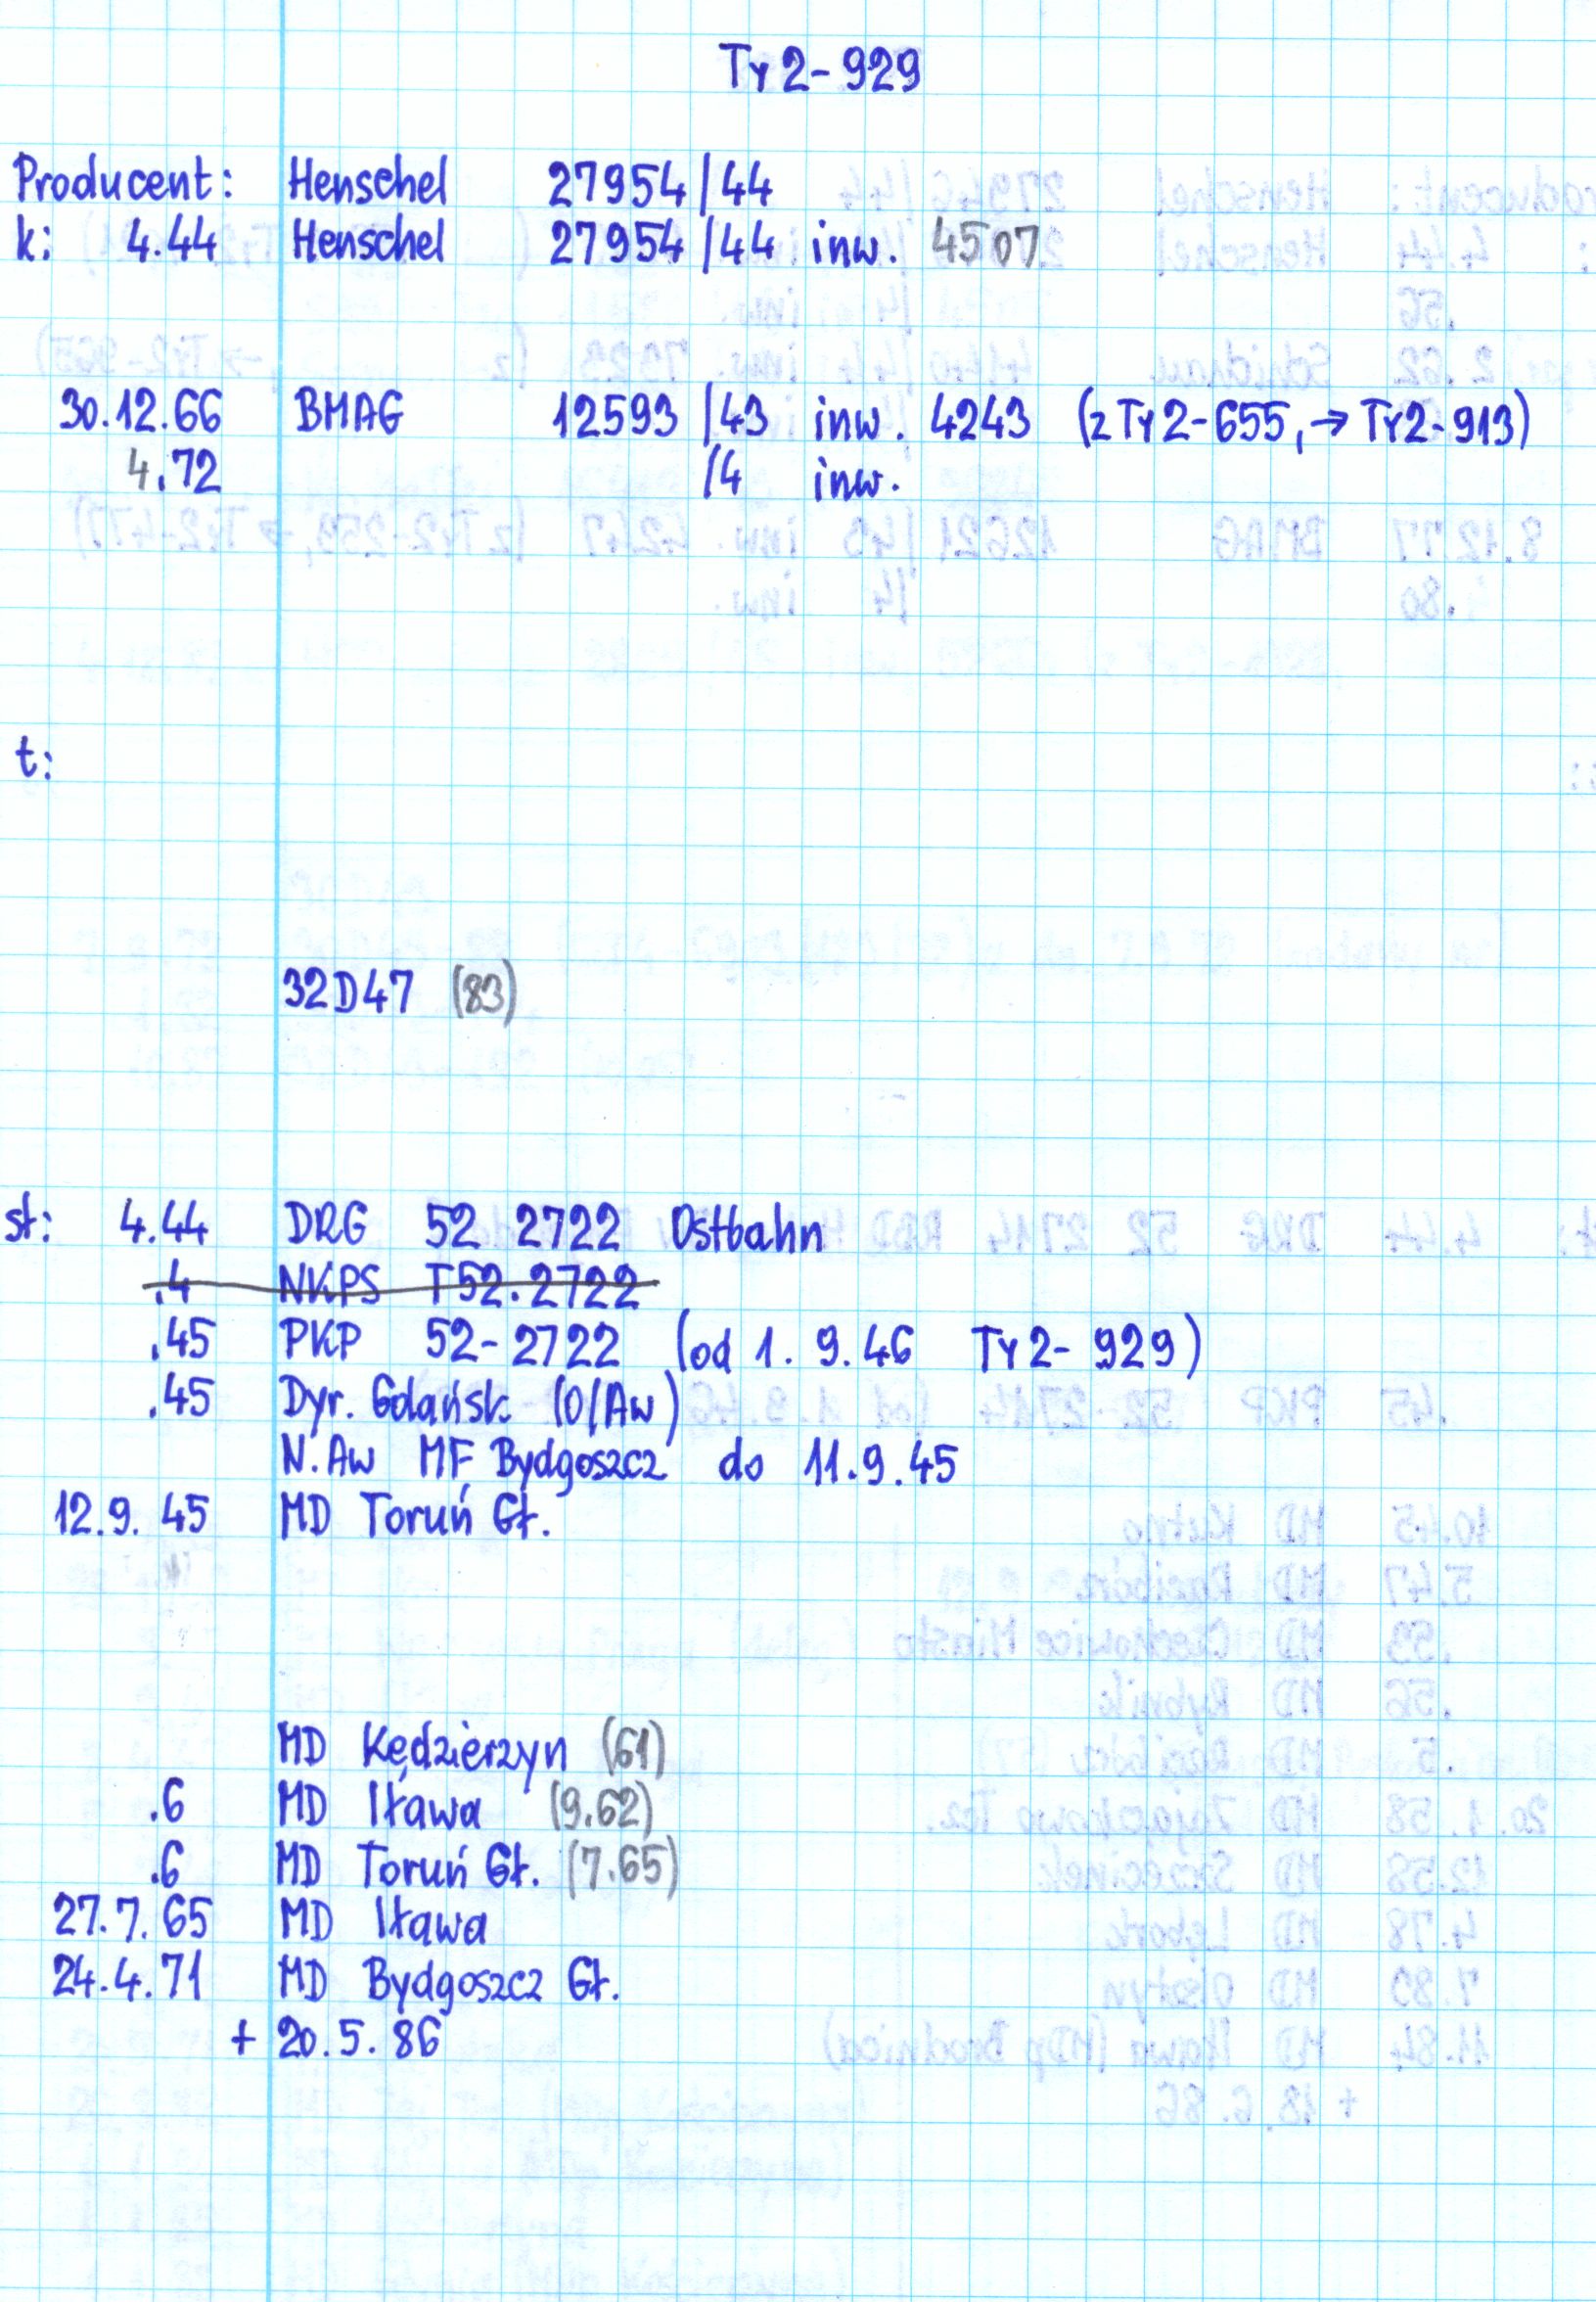 Ty2-929
Producent: Henschel 27954/44
k: 4.44 Henschel 27954/44 inw. 4507
30.12.66 BMAG 12593/43 inw. 4243 (z Ty2-655, → Ty2-913)
4.72 /4 inw.
t:
32D47 (83)
st: 4.44 DRG 52 2722 Ostbahn
.4 NKPS T52.2722
.45 PKP 52-2722 (od 1.9.46 Ty2-929)
.45 Dyr. Gdańsk (O/Aw)
N.Aw MF Bydgoszcz do 11.9.45
12.9.45 MD Toruń Gł.
MD Kędzierzyn (61)
.6 MD Iława (9.62)
.6 MD Toruń Gł. (7.65)
27.7.65 MD Iława
24.4.71 MD Bydgoszcz Gł.
+ 20.5.86